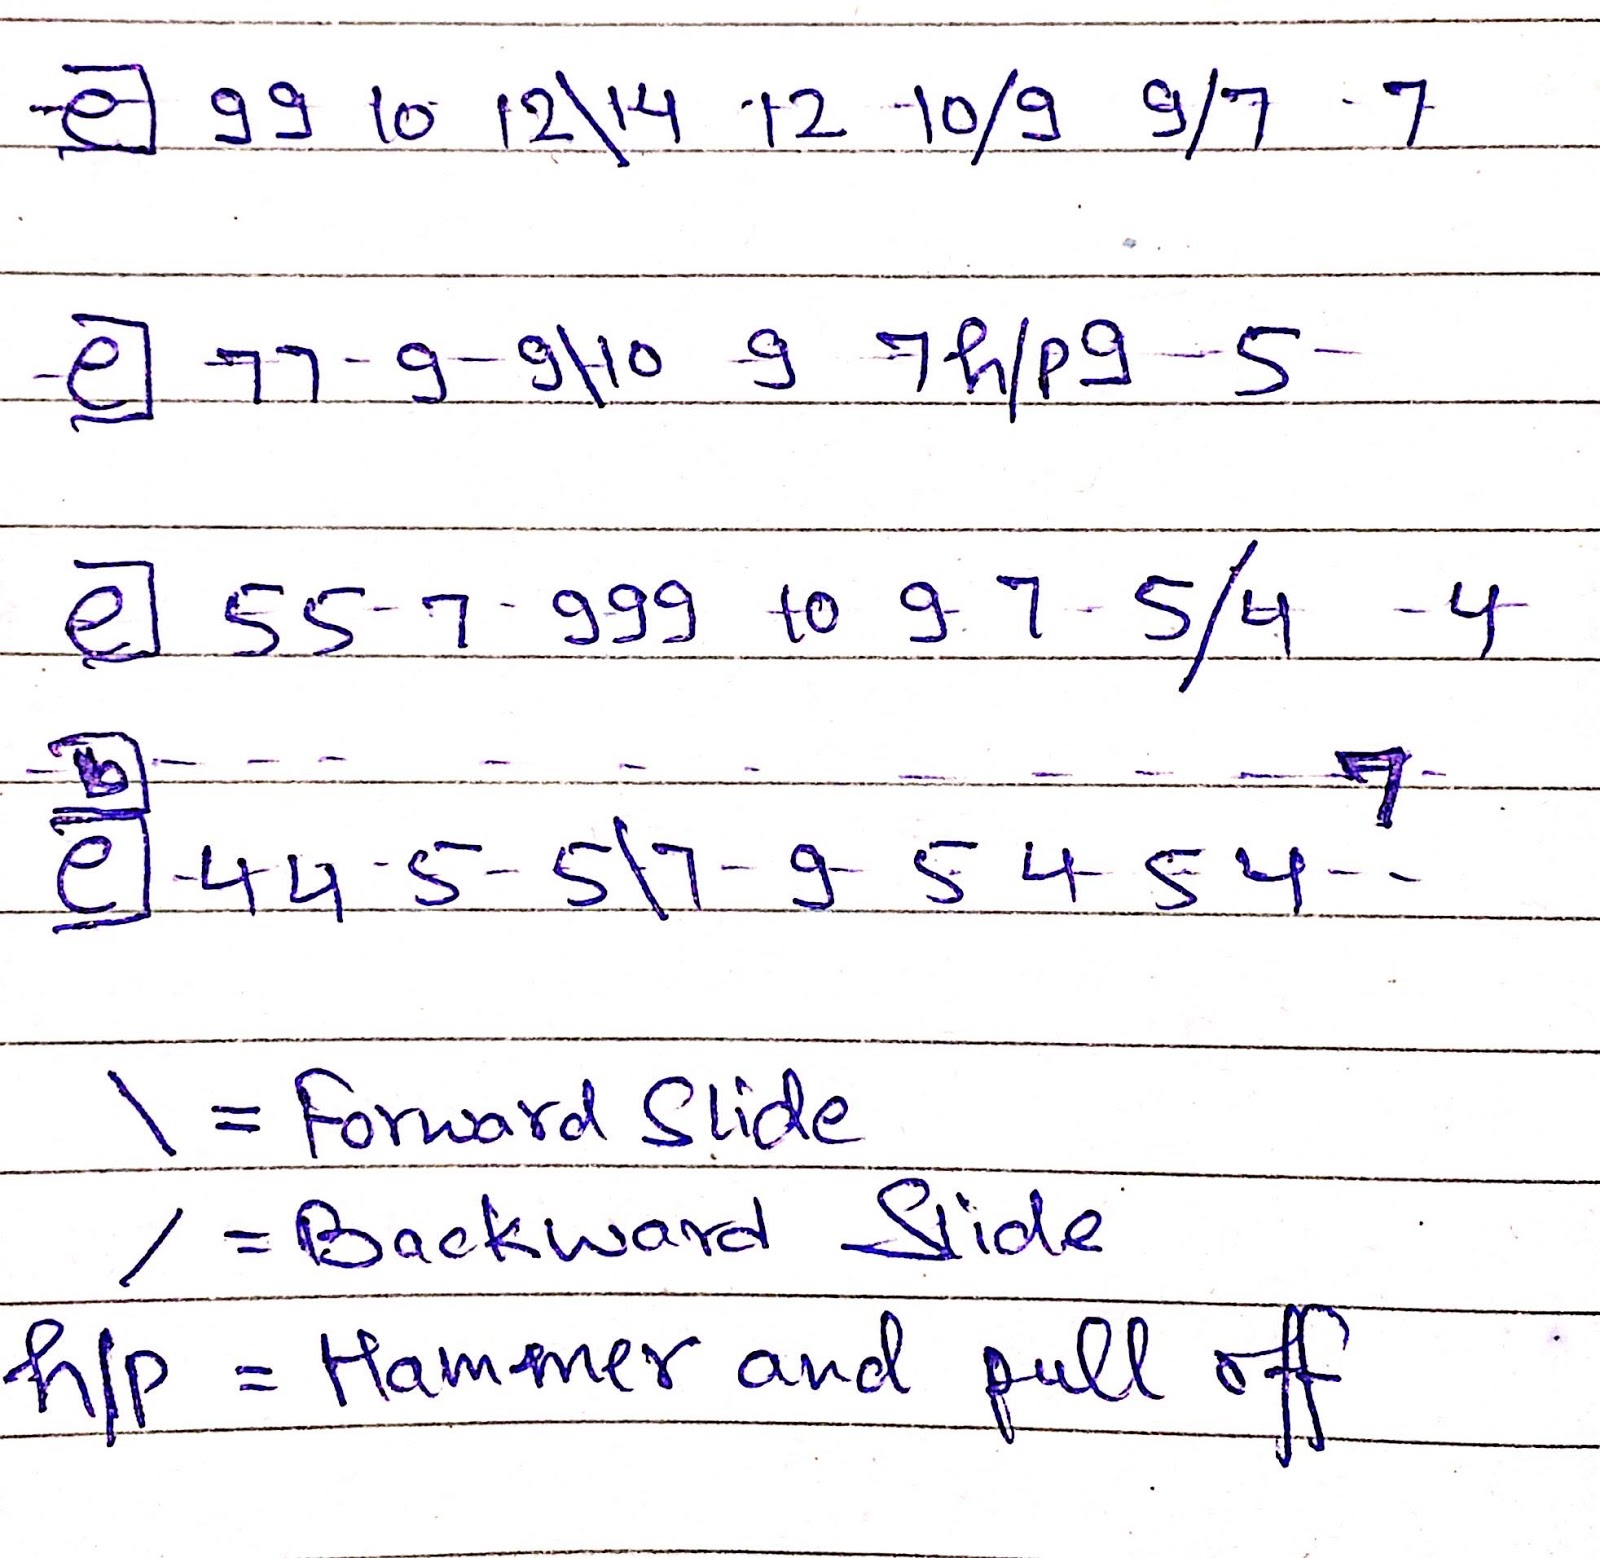 e] 99 10 12\14 12 10/9 9/7 - 7
e] 77-9-9\10 9 7h/p9-5-
e] 55-7-999 10 9-7-5/4 -4
b] - - - - - - - - - - 7-
e] -44-5-5\7-9-5 4-54--
\ = Forward Slide
/ = Backward Slide
h/p = Hammer and pull off